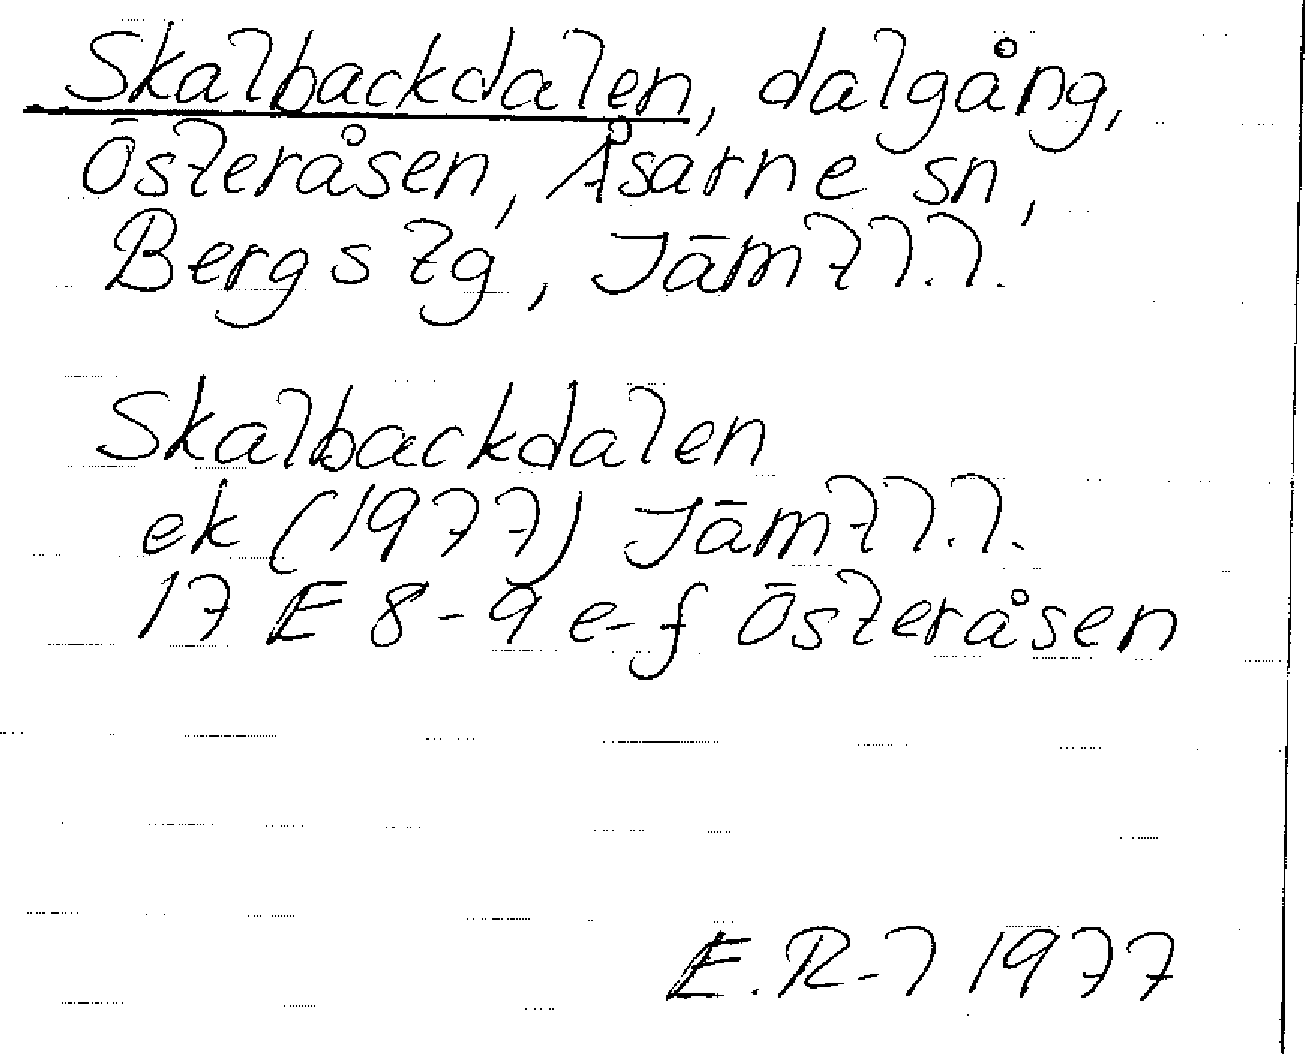 Skalbackdalen, dalgång,
Österåsen, Åsarne sn,
Bergs tg, Jämtl.l.
Skalbackdalen
ek (1977) Jämtl.l.
17 E 8-9 e-f Österåsen
E.R-l 1977